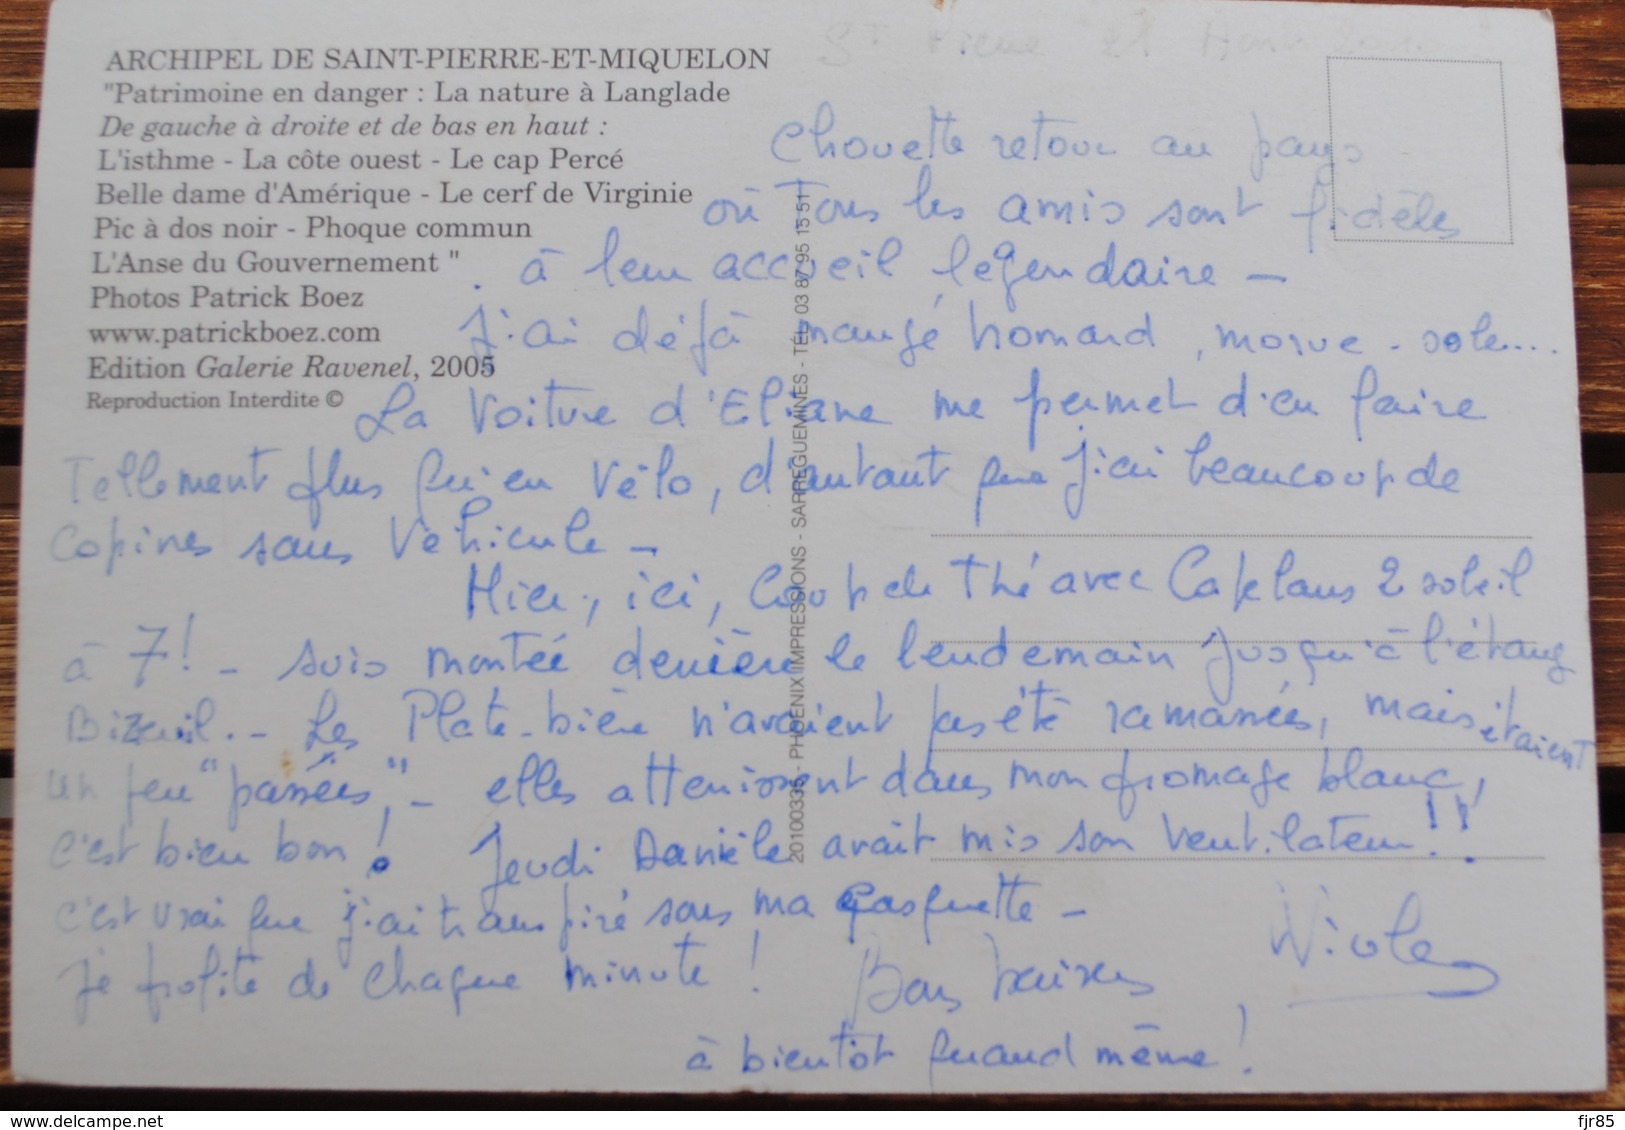 ARCHIPEL DE SAINT-PIERRE-ET-MIQUELON
"Patrimoine en danger : La nature à Langlade
De gauche à droite et de bas en haut :
L'isthme - La côte ouest - Le cap Percé
Belle dame d'Amérique - Le cerf de Virginie
Pic à dos noir - Phoque commun
L'Anse du Gouvernement "
Photos Patrick Boez
www.patrickboez.com
Edition Galerie Ravenel, 2005
Reproduction Interdite ©
20100335 - PHOENIX IMPRESSIONS - SARREGUEMINES - TÉL. 03 87 95 15 51
St
Chouette retour au pays
où Tous les amis sont fidèles
à leur accueil légendaire -
J'ai déjà mangé homard, morue - sole...
La Voiture d'Eliane me permet d'en faire
Tellement plus qu'en Vélo, d'autant que j'ai beaucoup de
copines sans Véhicule -
Hier, ici, Coup de Thé avec Capelans 2 soleil
à 7! - suis montée derrière le lendemain jusqu'à l'étang
Bizeuil. - Les Plate-bière n'avaient pas été ramassées, mais étaient
un peu "passées," - elles atterrissent dans mon fromage blanc,
c'est bien bon! Jeudi Danièle avait mis son ventilateur!!
c'est vrai que j'ai transpiré sous ma casquette -
Je profite de chaque minute! Bons baisers
Nicole
à bientôt quand même!
fjr85